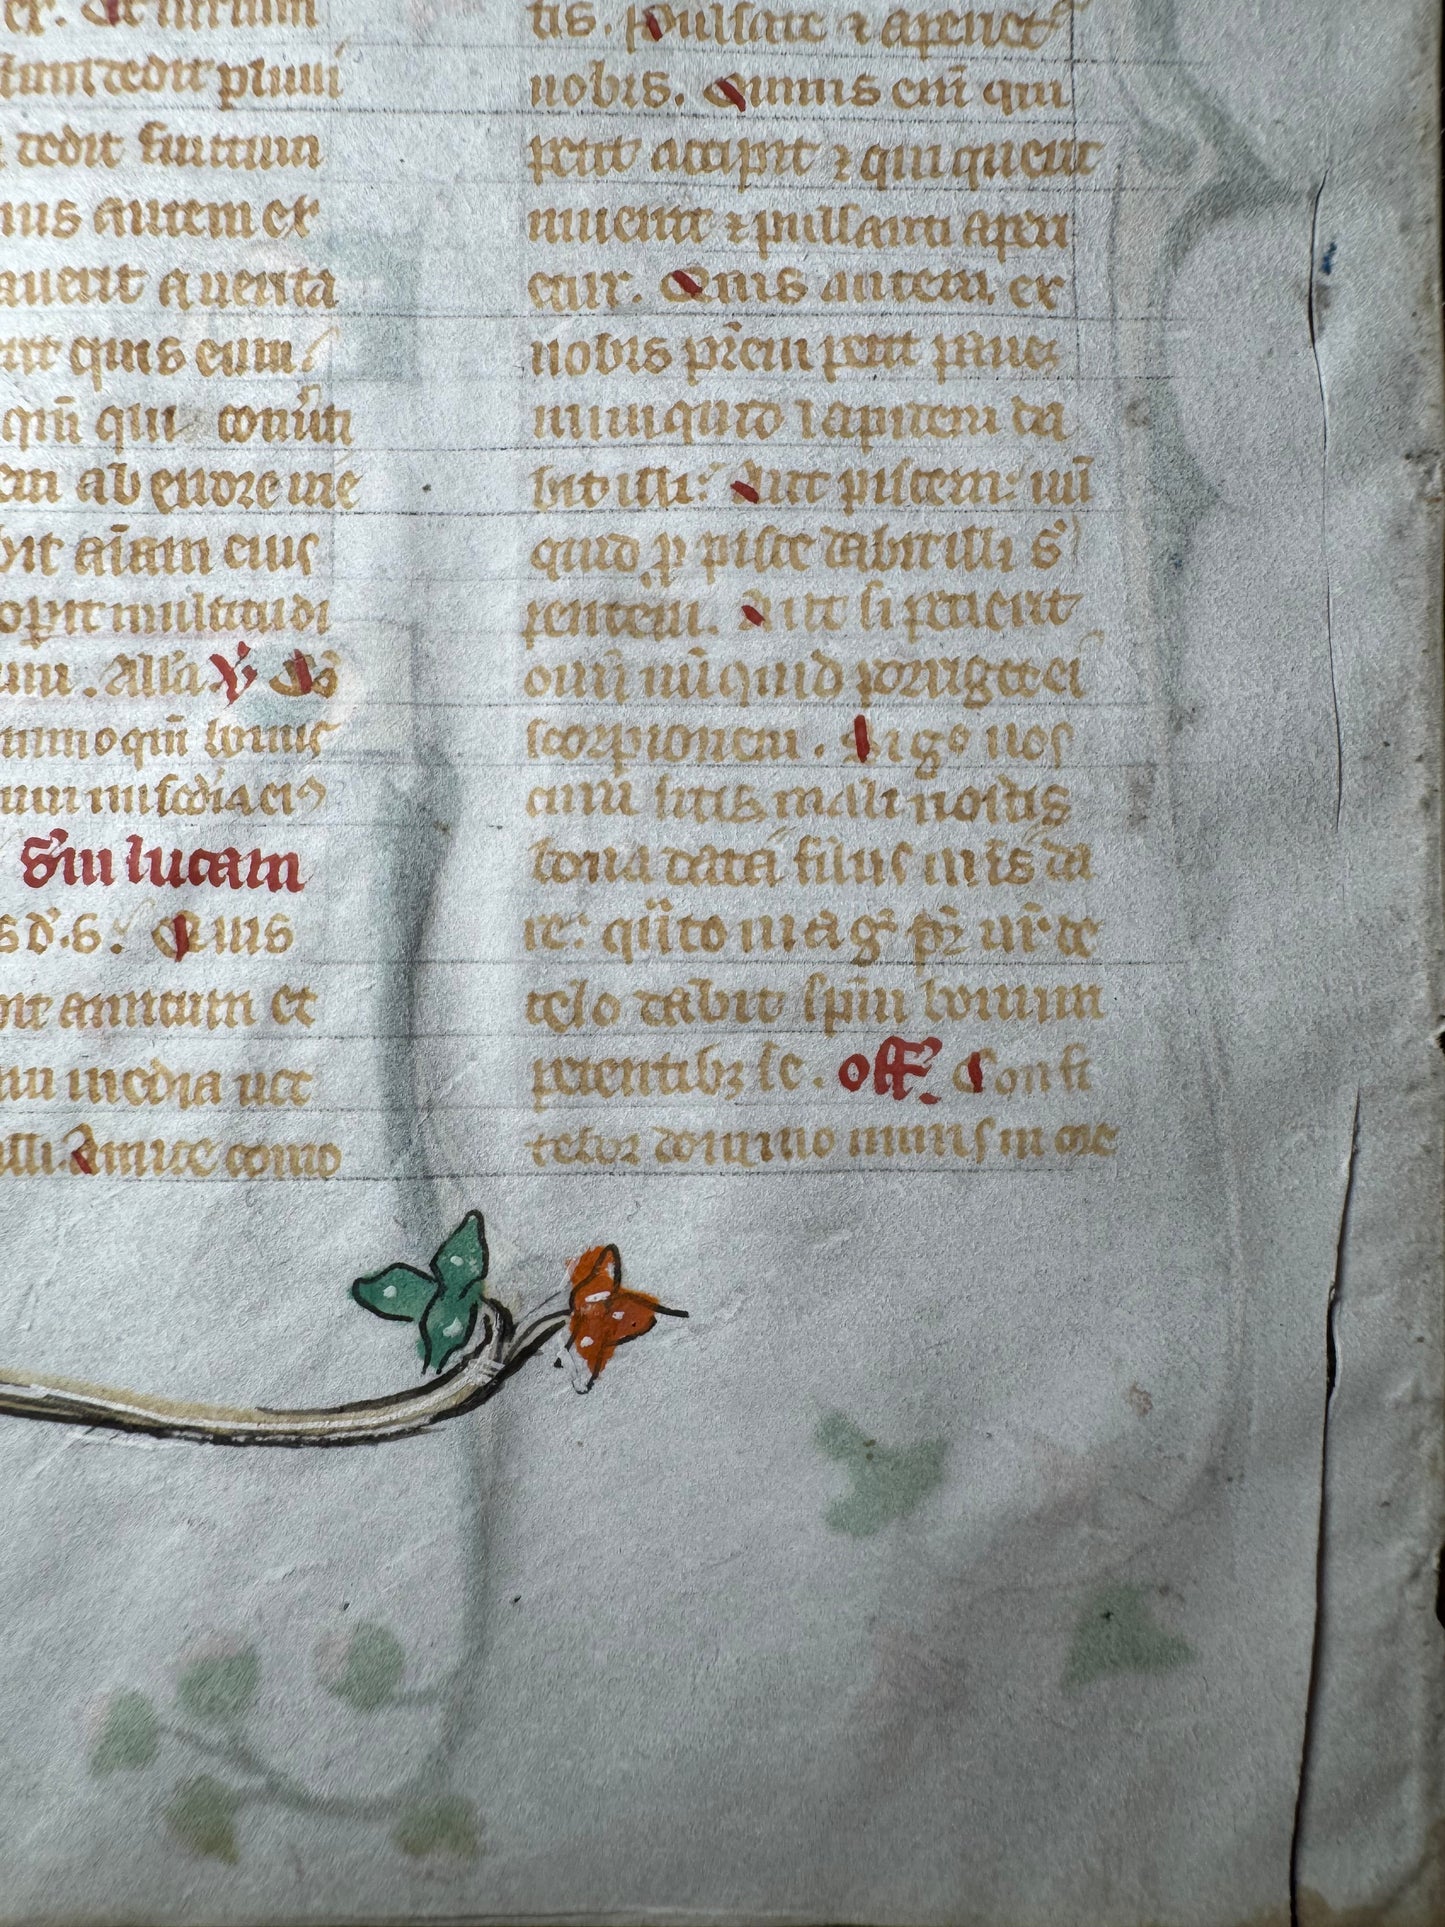 et iterum
dedit pluui
dedit fructum
autem ex
auerit a uerita
quis eum
qm̄ qui conuti
ab errore uie
bit aīam eius
operit multitudi
Alla ℣ Cō
qm̄ bonus
miscdia ei⁹
Sm lucam
s d. s. Quis
bit amicum et
media noct
illi Amice como
tis. Pulsate ⁊ aperiet᷑
uobis. Omnis em̄ qui
petit accipit ⁊ qui querit
inuenit ⁊ pulsanti aperi
etur. Quis autem ex
uobis pr̄em petit panē
nunquid lapidem da
bit illi: Aut piscem: nū
quid ꝓ pisce dabit illi s̄
pentem. Aut si petierit
ouū nūquid porriget ei
scorpionem. Si gͦ uos
cum sitis mali nostis
bona data filiis uris da
re: qͣnto mag̾ pr̄ ur̄ de
celo dabit spm̄ bonum
petentibꝫ se. off̄. Confi
tebor domino nimis in ore